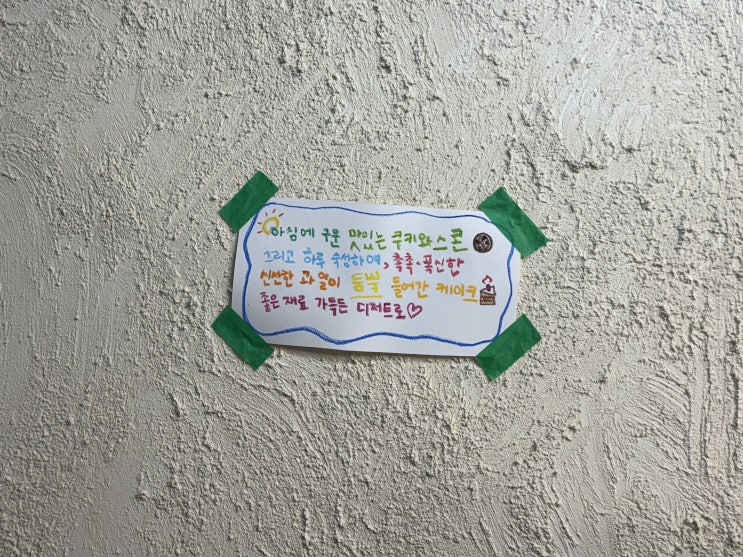 아침에 구운 맛있는 쿠키와 스콘
그리고 하루 숙성하여, 촉촉·폭신한
신선한 과일이 듬뿍 들어간 케이크
좋은 재료 가득든 디저트로♡